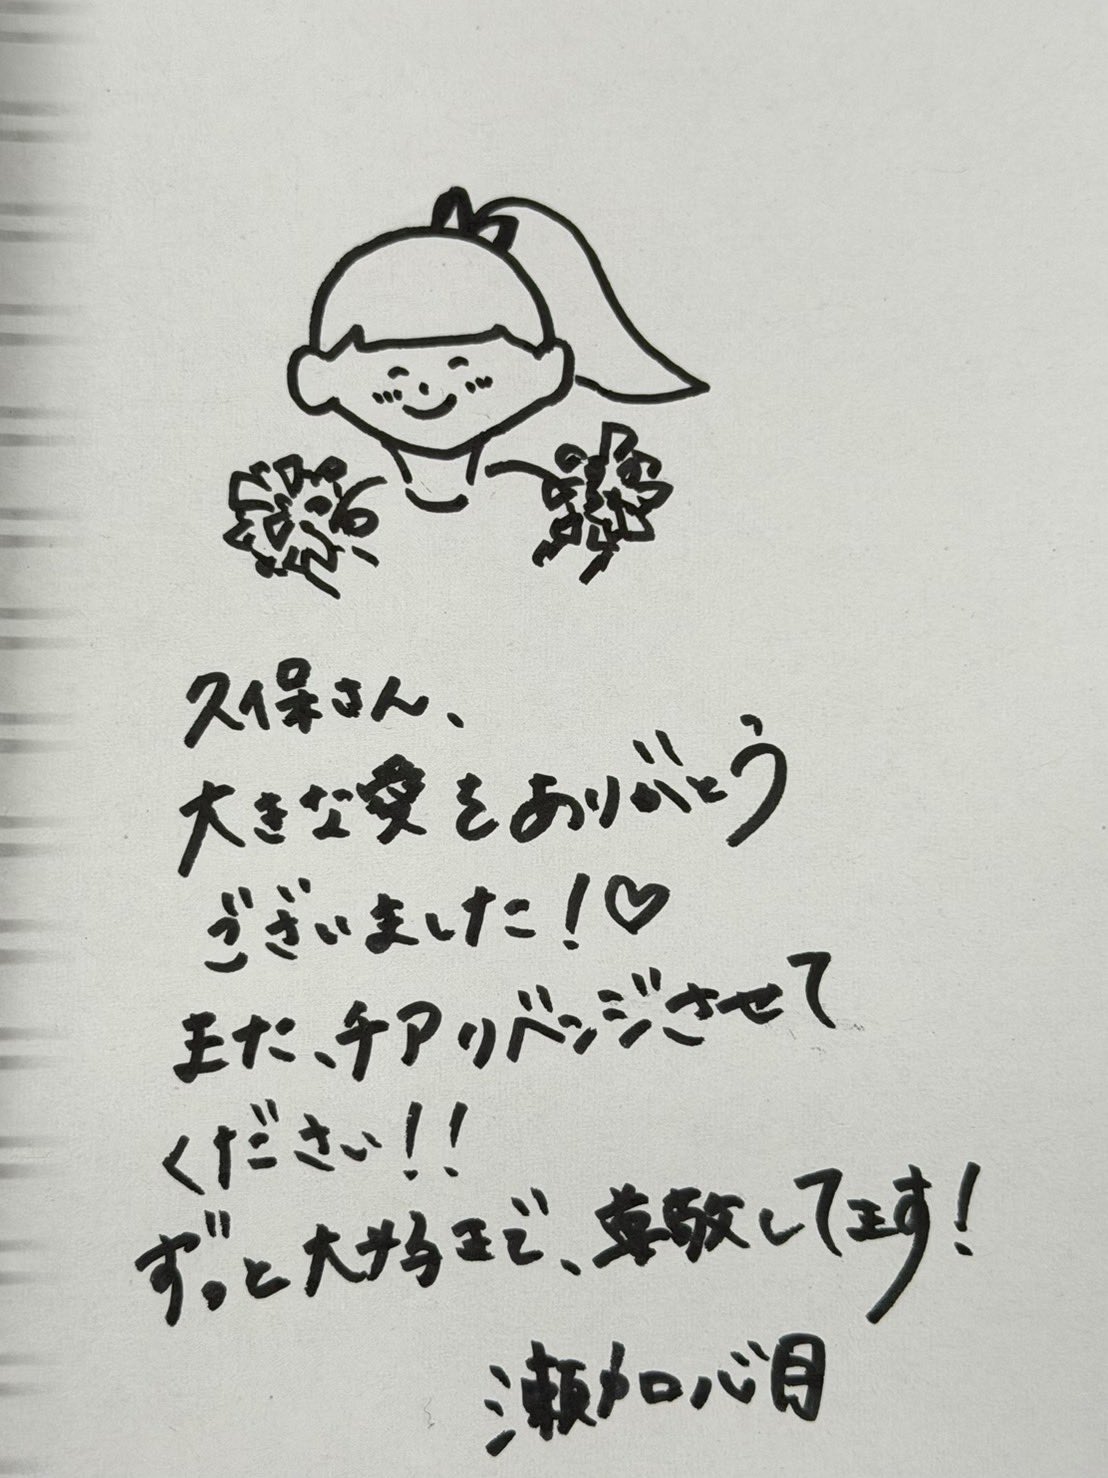 久保さん、
大きな愛をありがとう
ございました！♡
また、チアリベンジさせて
ください！！
ずっと大好きで、尊敬してます！